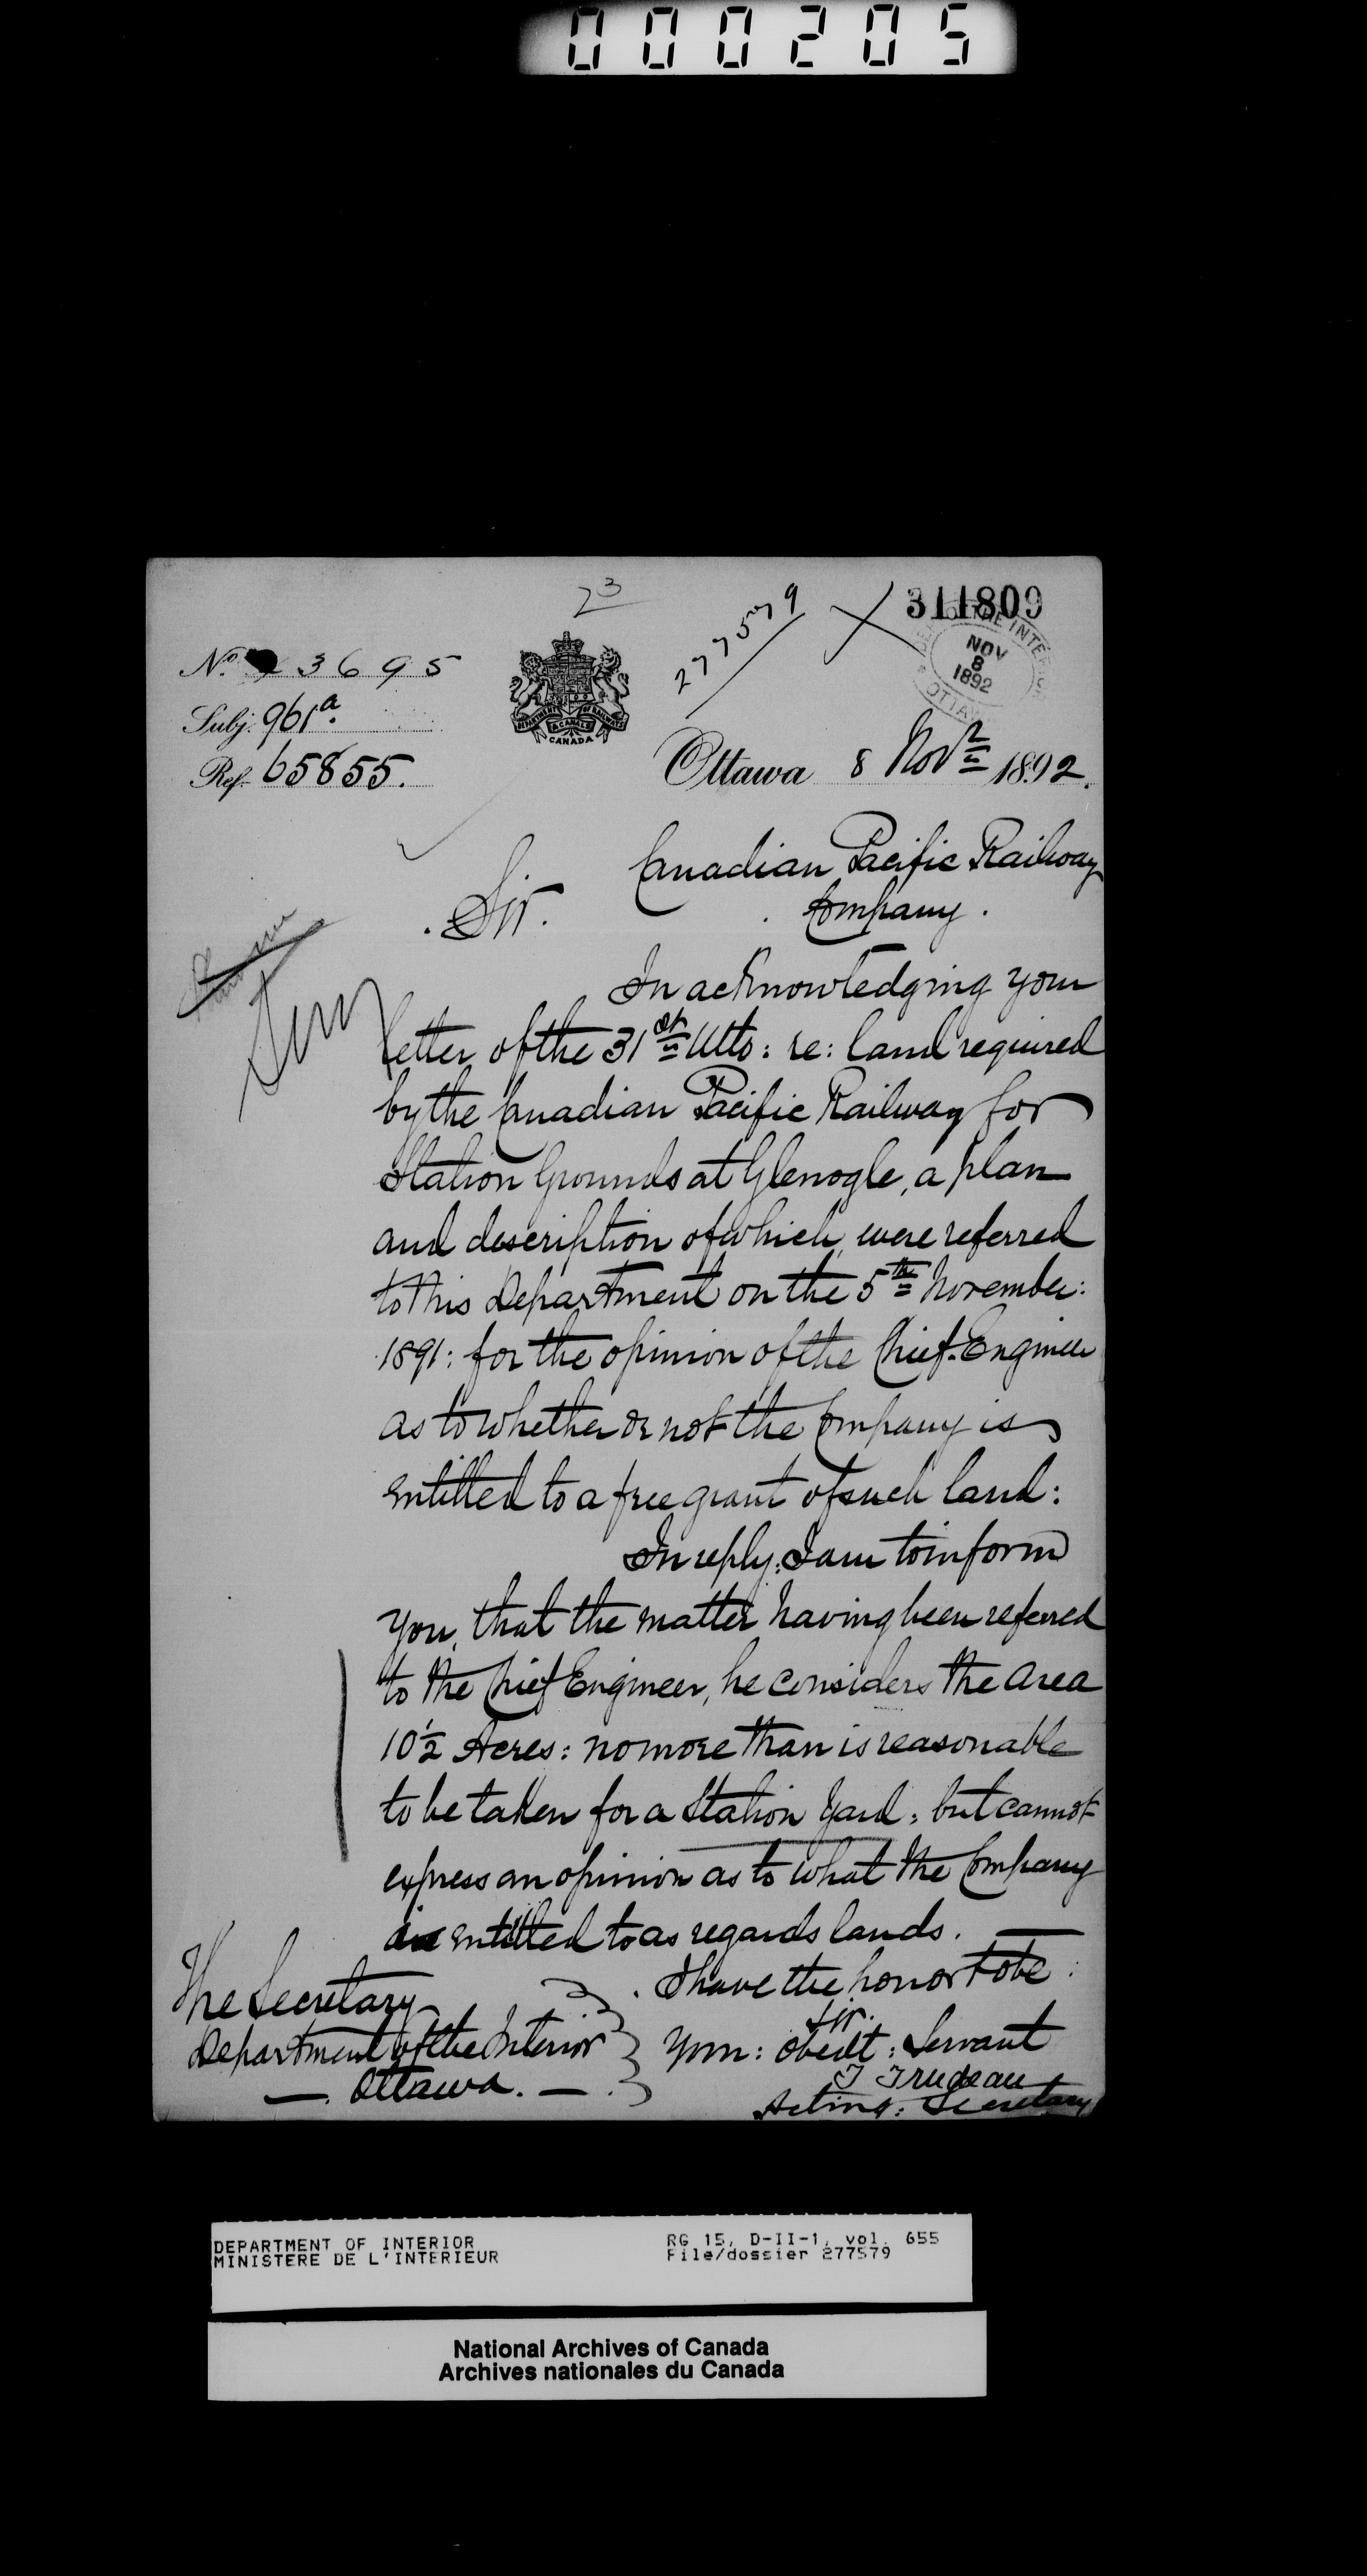 000205
23
277579
311809
DEPT. OF THE INTERIOR
NOV
8
1892
OTTAWA
No. 3695
Subj. 961a.
Ref. 65855.
DEPARTMENT OF RAILWAYS
& CANALS
CANADA
Ottawa 8 Novr 1892.
Canadian Pacific Railway
Company.
Sir.
In acknowledging your
letter of the 31st Ulto: re: land required
by the Canadian Pacific Railway for
Station Grounds at Glenogle, a plan
and description of which, were referred
to this Department on the 5th November:
1891: for the opinion of the Chief Engineer
as to whether or not the Company is
entitled to a free grant of such land:
In reply: I am to inform
you, that the matter having been referred
to the Chief Engineer, he considers the area
10½ Acres: no more than is reasonable
to be taken for a Station Yard: but cannot
express an opinion as to what the Company
is entitled to as regards lands. —
I have the honor to be:
Sir.
Your: Obedt: Servant
T Trudeau
Acting: Secretary
The Secretary
Department of the Interior
— Ottawa. —
DEPARTMENT OF INTERIOR
MINISTERE DE L'INTERIEUR
RG 15, D-II-1, vol. 655
File/dossier 277579
National Archives of Canada
Archives nationales du Canada